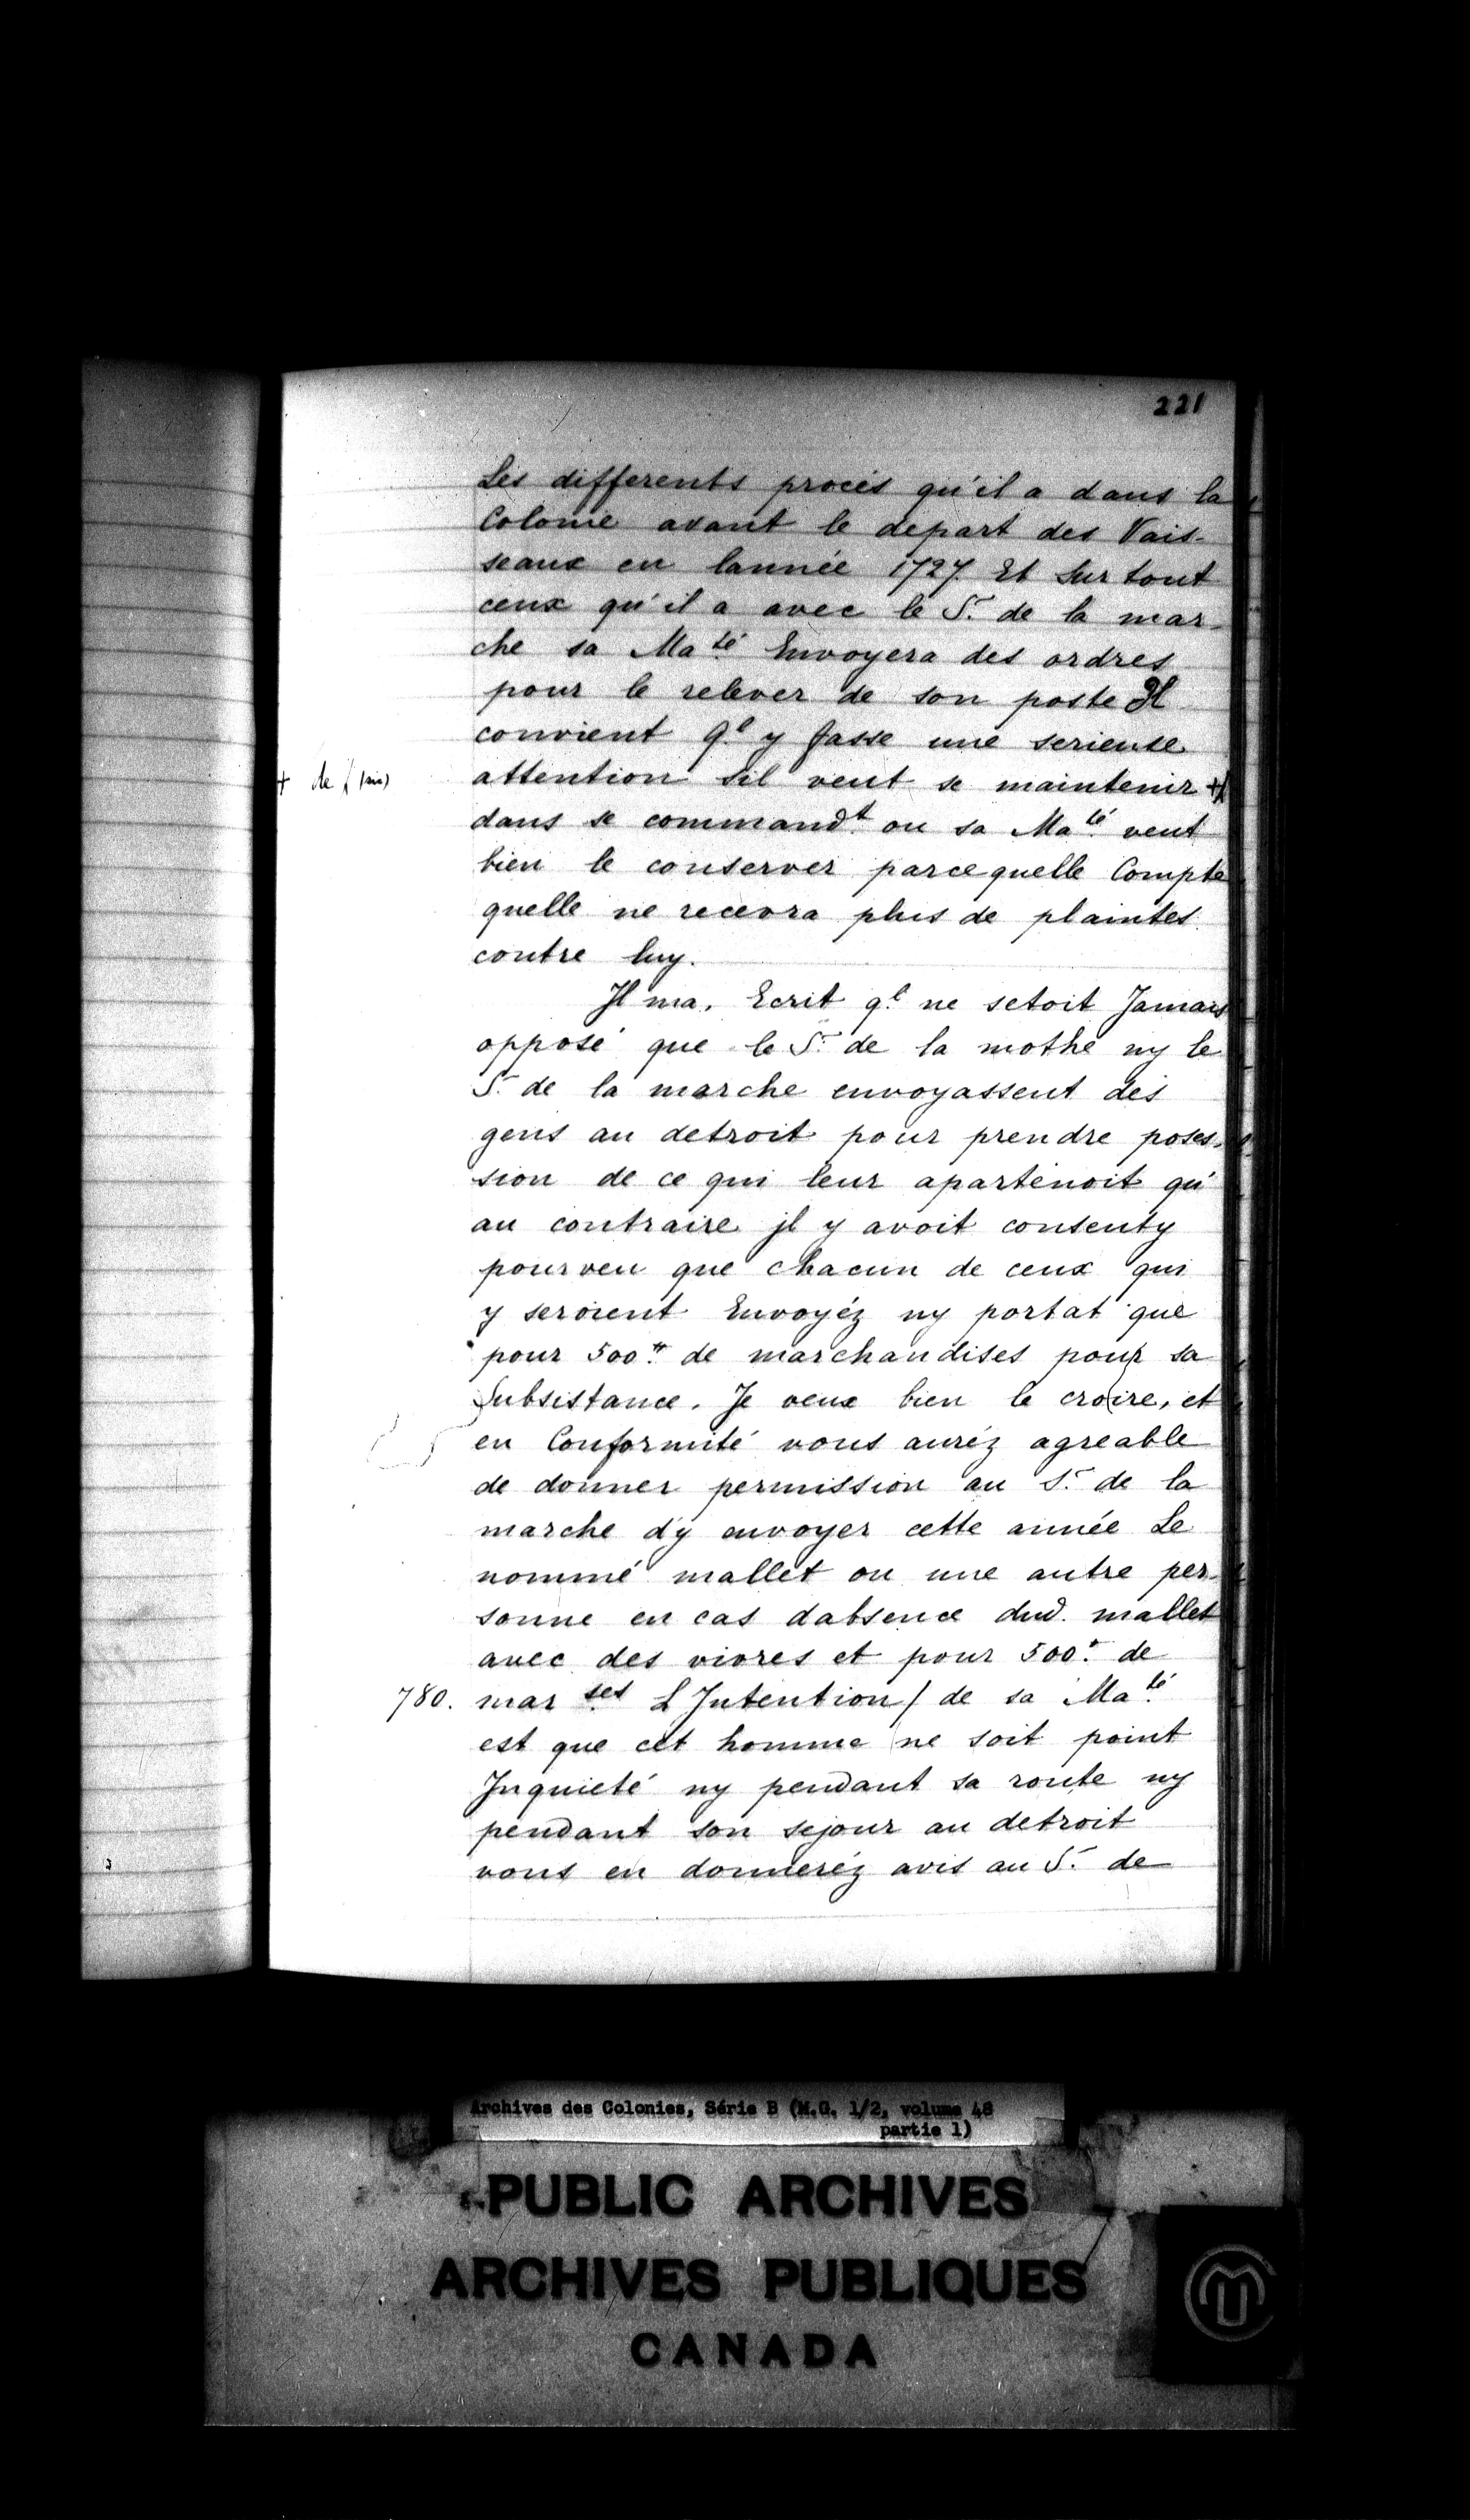 221
Les differents procés qu'il a dans la
Colonie avant le depart des Vais-
seaux en lannée 1727. Et Sur tout
ceux qu'il a avec le Sr. de la mar-
che sa Maté Envoyera des ordres
pour le relever de son poste Il
convient ql y fasse une serieuse
attention sil veut se maintenir +
+ de (sic)
dans se commandt. ou sa Maté veut
bien le conserver parcequelle Compte
quelle ne recevra plus de plaintes
contre luy.
Il ma. Ecrit ql. ne setoit Jamais
opposé que le Sr. de la mothe ny le
Sr. de la marche envoyassent des
gens au detroit pour prendre poses-
sion de ce qui leur apartenoit qu'
au contraire jl y avoit consenty
pourveu que chacun de ceux qui
y seroient Envoyéz ny portat que
pour 500tt. de marchandises pour sa
Subsistance. Je veux bien le croire, et
en Conformité vous auréz agreable
de donner permission au Sr. de la
marche d'y envoyer cette année Le
nommé mallet ou une autre per-
sonne en cas dabsence dud. mallet
avec des vivres et pour 500tt. de
780. mar ses L Intention / de sa Maté
est que cet homme ne soit point
Inquieté ny pendant sa route ny
pendant son sejour au detroit
vous en donneréz avis au Sr. de
Archives des Colonies, Série B (M.G. 1/2, volume 48
partie 1)
PUBLIC ARCHIVES
ARCHIVES PUBLIQUES
CANADA